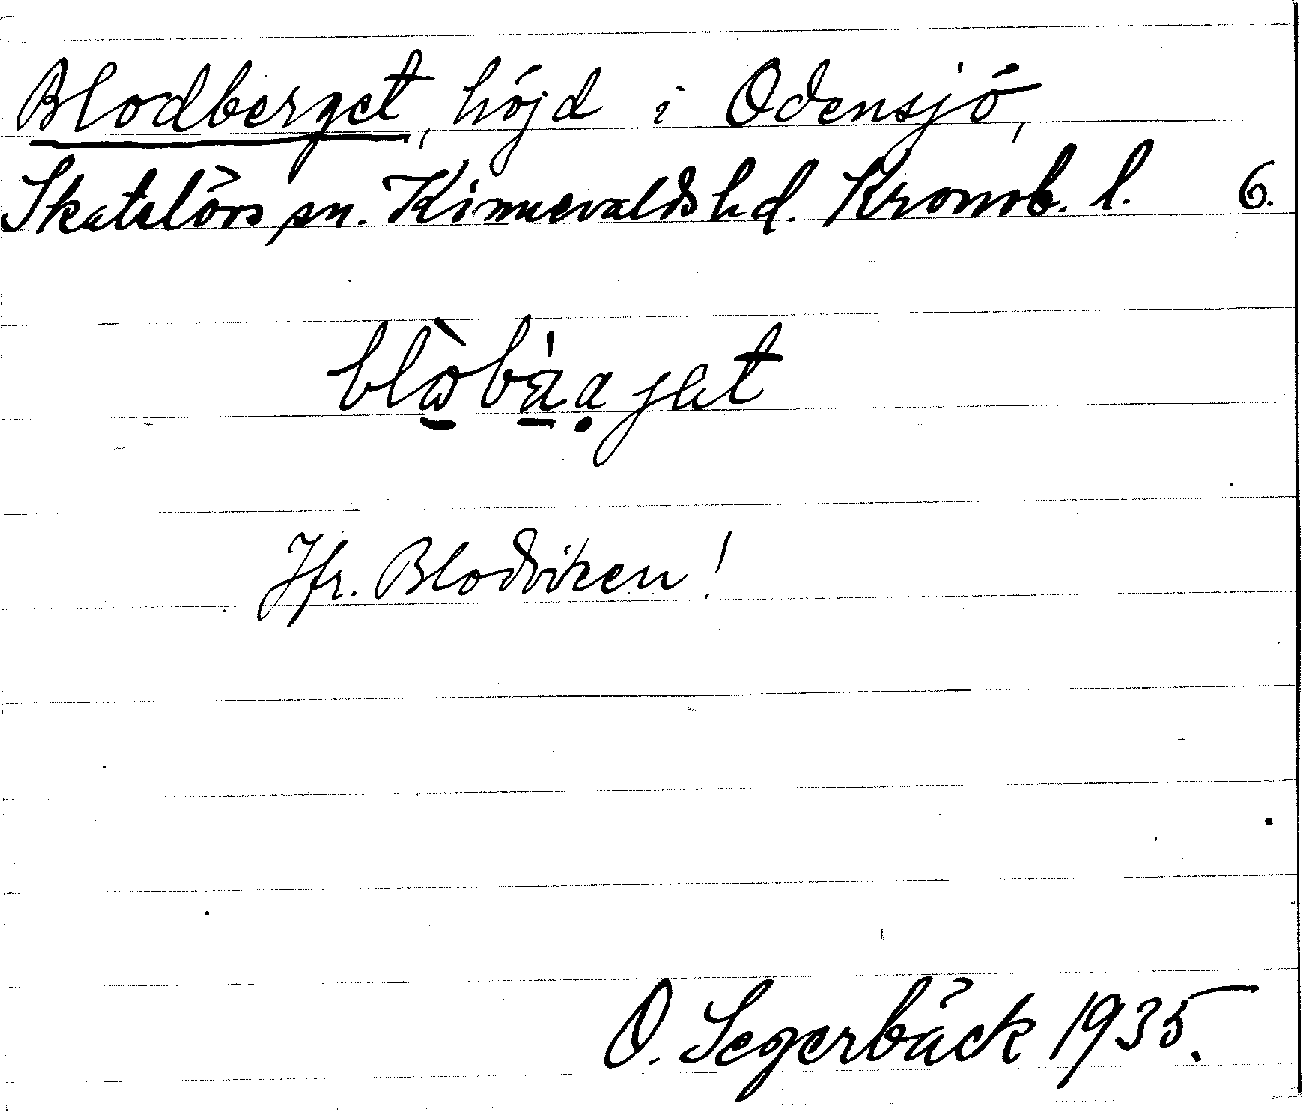 Blodberget, höjd i Odensjö,
Skatelövs sn. Kinnevalds hd. Kronob. l. 6.
Jfr. Blodviken!
O. Segerbäck 1935.